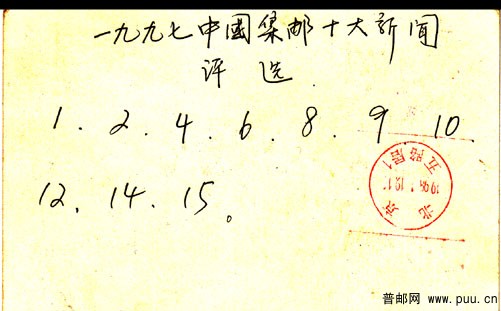 一九九七中國集邮十大新闻
评选
1. 2. 4. 6. 8. 9 10
12. 14. 15。
北京
五路居1
普邮网 www.puu.cn